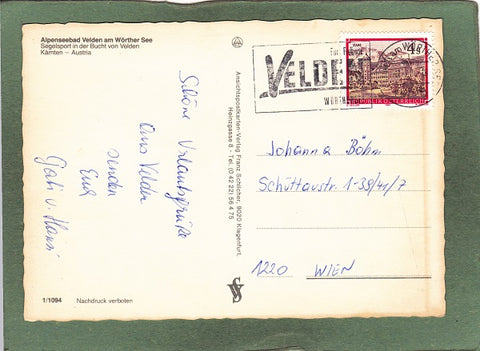 Alpenseebad Velden am Wörther See
Segelsport in der Bucht von Velden
Kärnten – Austria
Schöne Urlaubsgrüße
aus Velden
senden
Eure
Gabi u. Hansi
1/1094 Nachdruck verboten
Ansichtspostkarten-Verlag Franz Schilcher, 9020 Klagenfurt,
Heinzgasse 8 · Tel. (0 42 22) 56 4 75
VELDEN
WÖRTH
4 S
REPUBLIK ÖSTERREICH
Johanna Böhm
Schüttaustr. 1-39/41/7
1220 WIEN